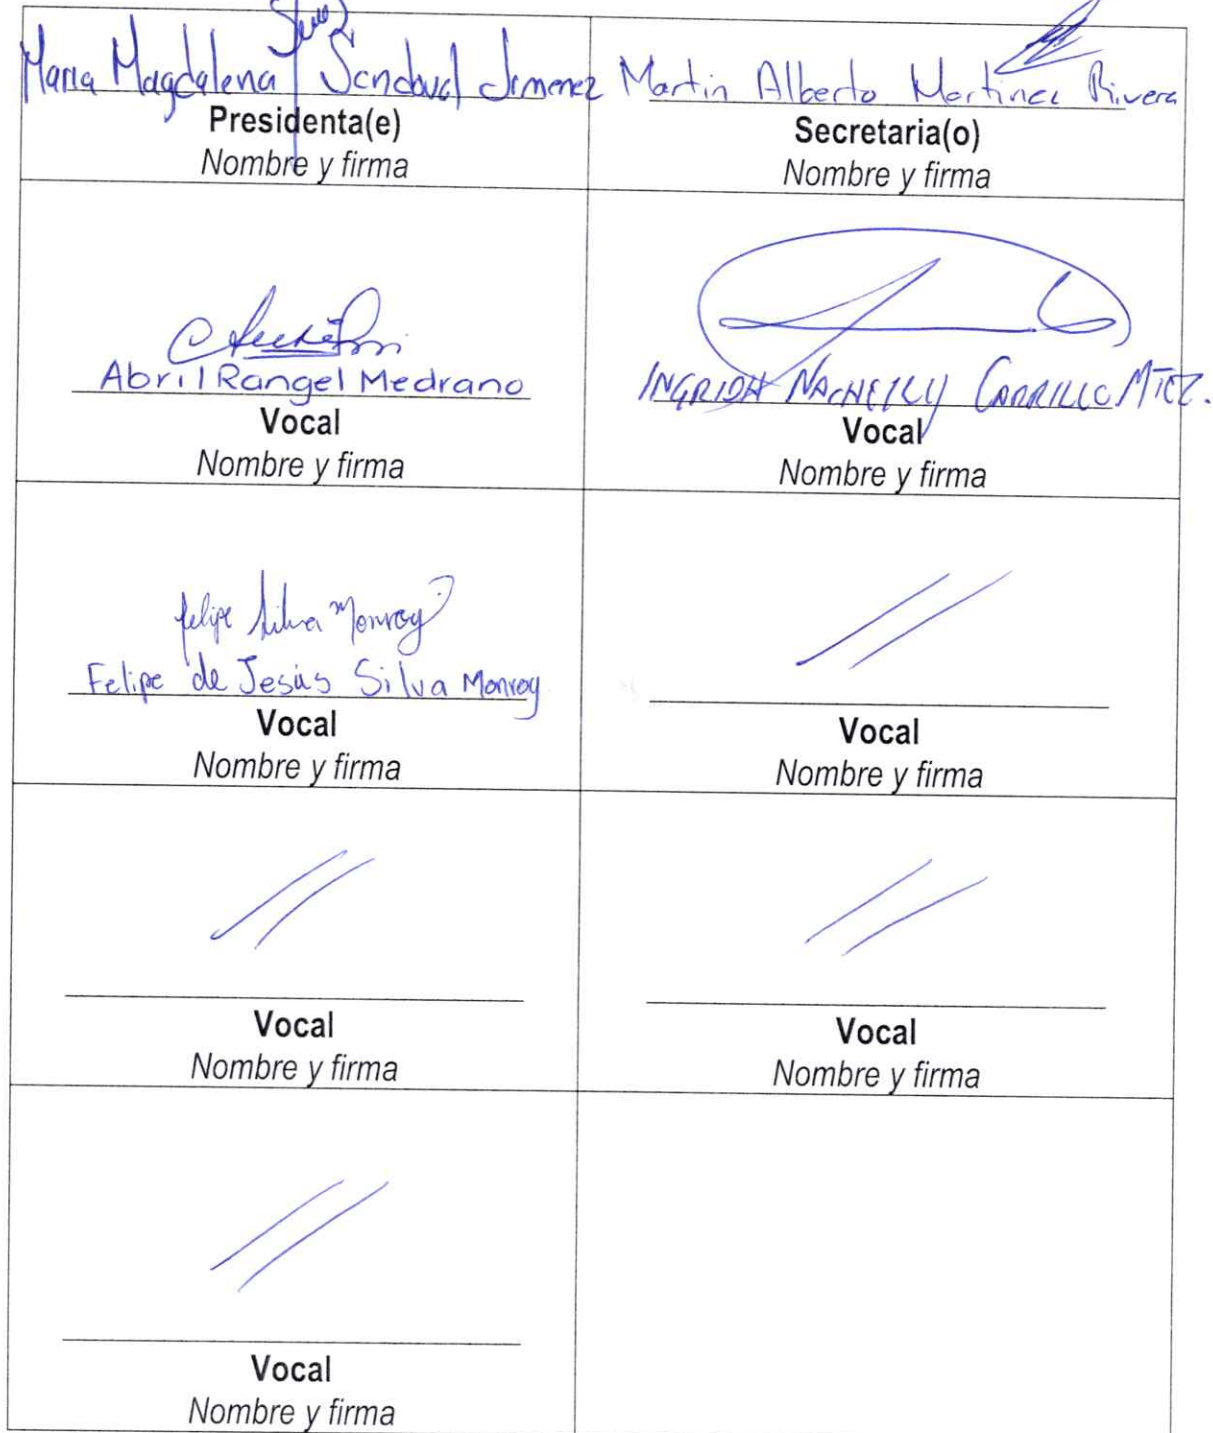 Maria Magdalena Sandoval Jimenez
Presidenta(e)
Nombre y firma
Martin Alberto Martinez Rivera
Secretaria(o)
Nombre y firma
Abril Rangel Medrano
Vocal
Nombre y firma
INGRIDH NACHEILLY CARRILLO MTEZ.
Vocal
Nombre y firma
felipe Silva Monroy
Felipe de Jesús Silva Monroy
Vocal
Nombre y firma
Vocal
Nombre y firma
Vocal
Nombre y firma
Vocal
Nombre y firma
Vocal
Nombre y firma